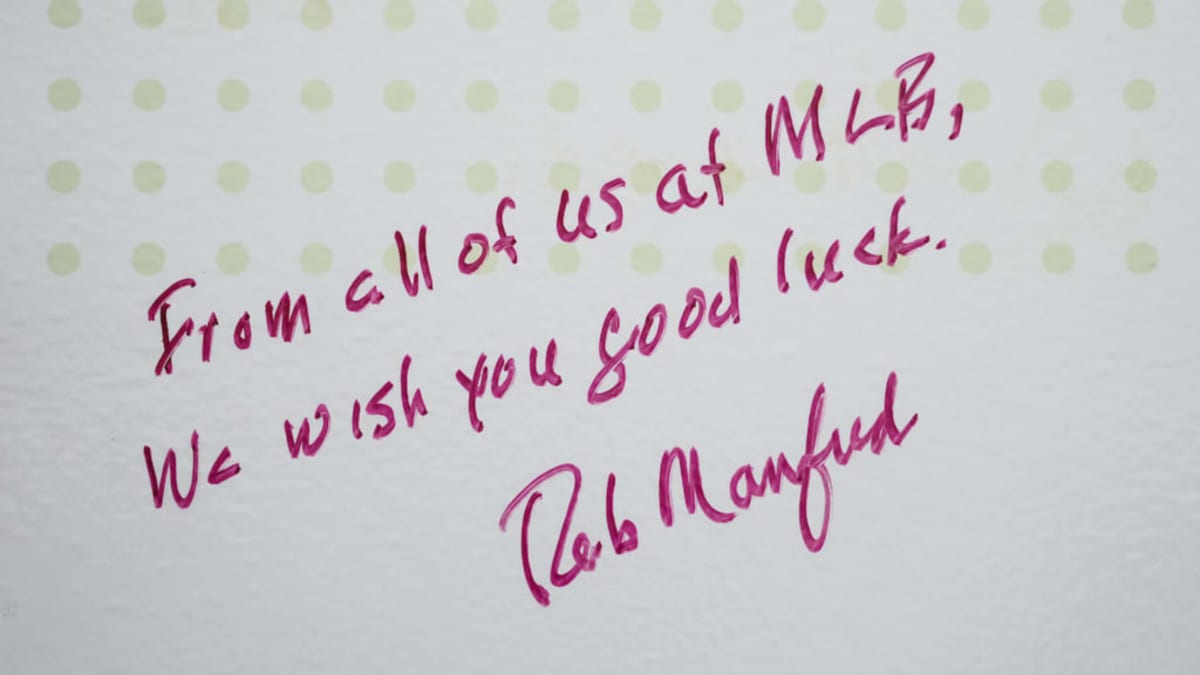 From all of us at MLB,
We wish you good luck.
Rob Manfred